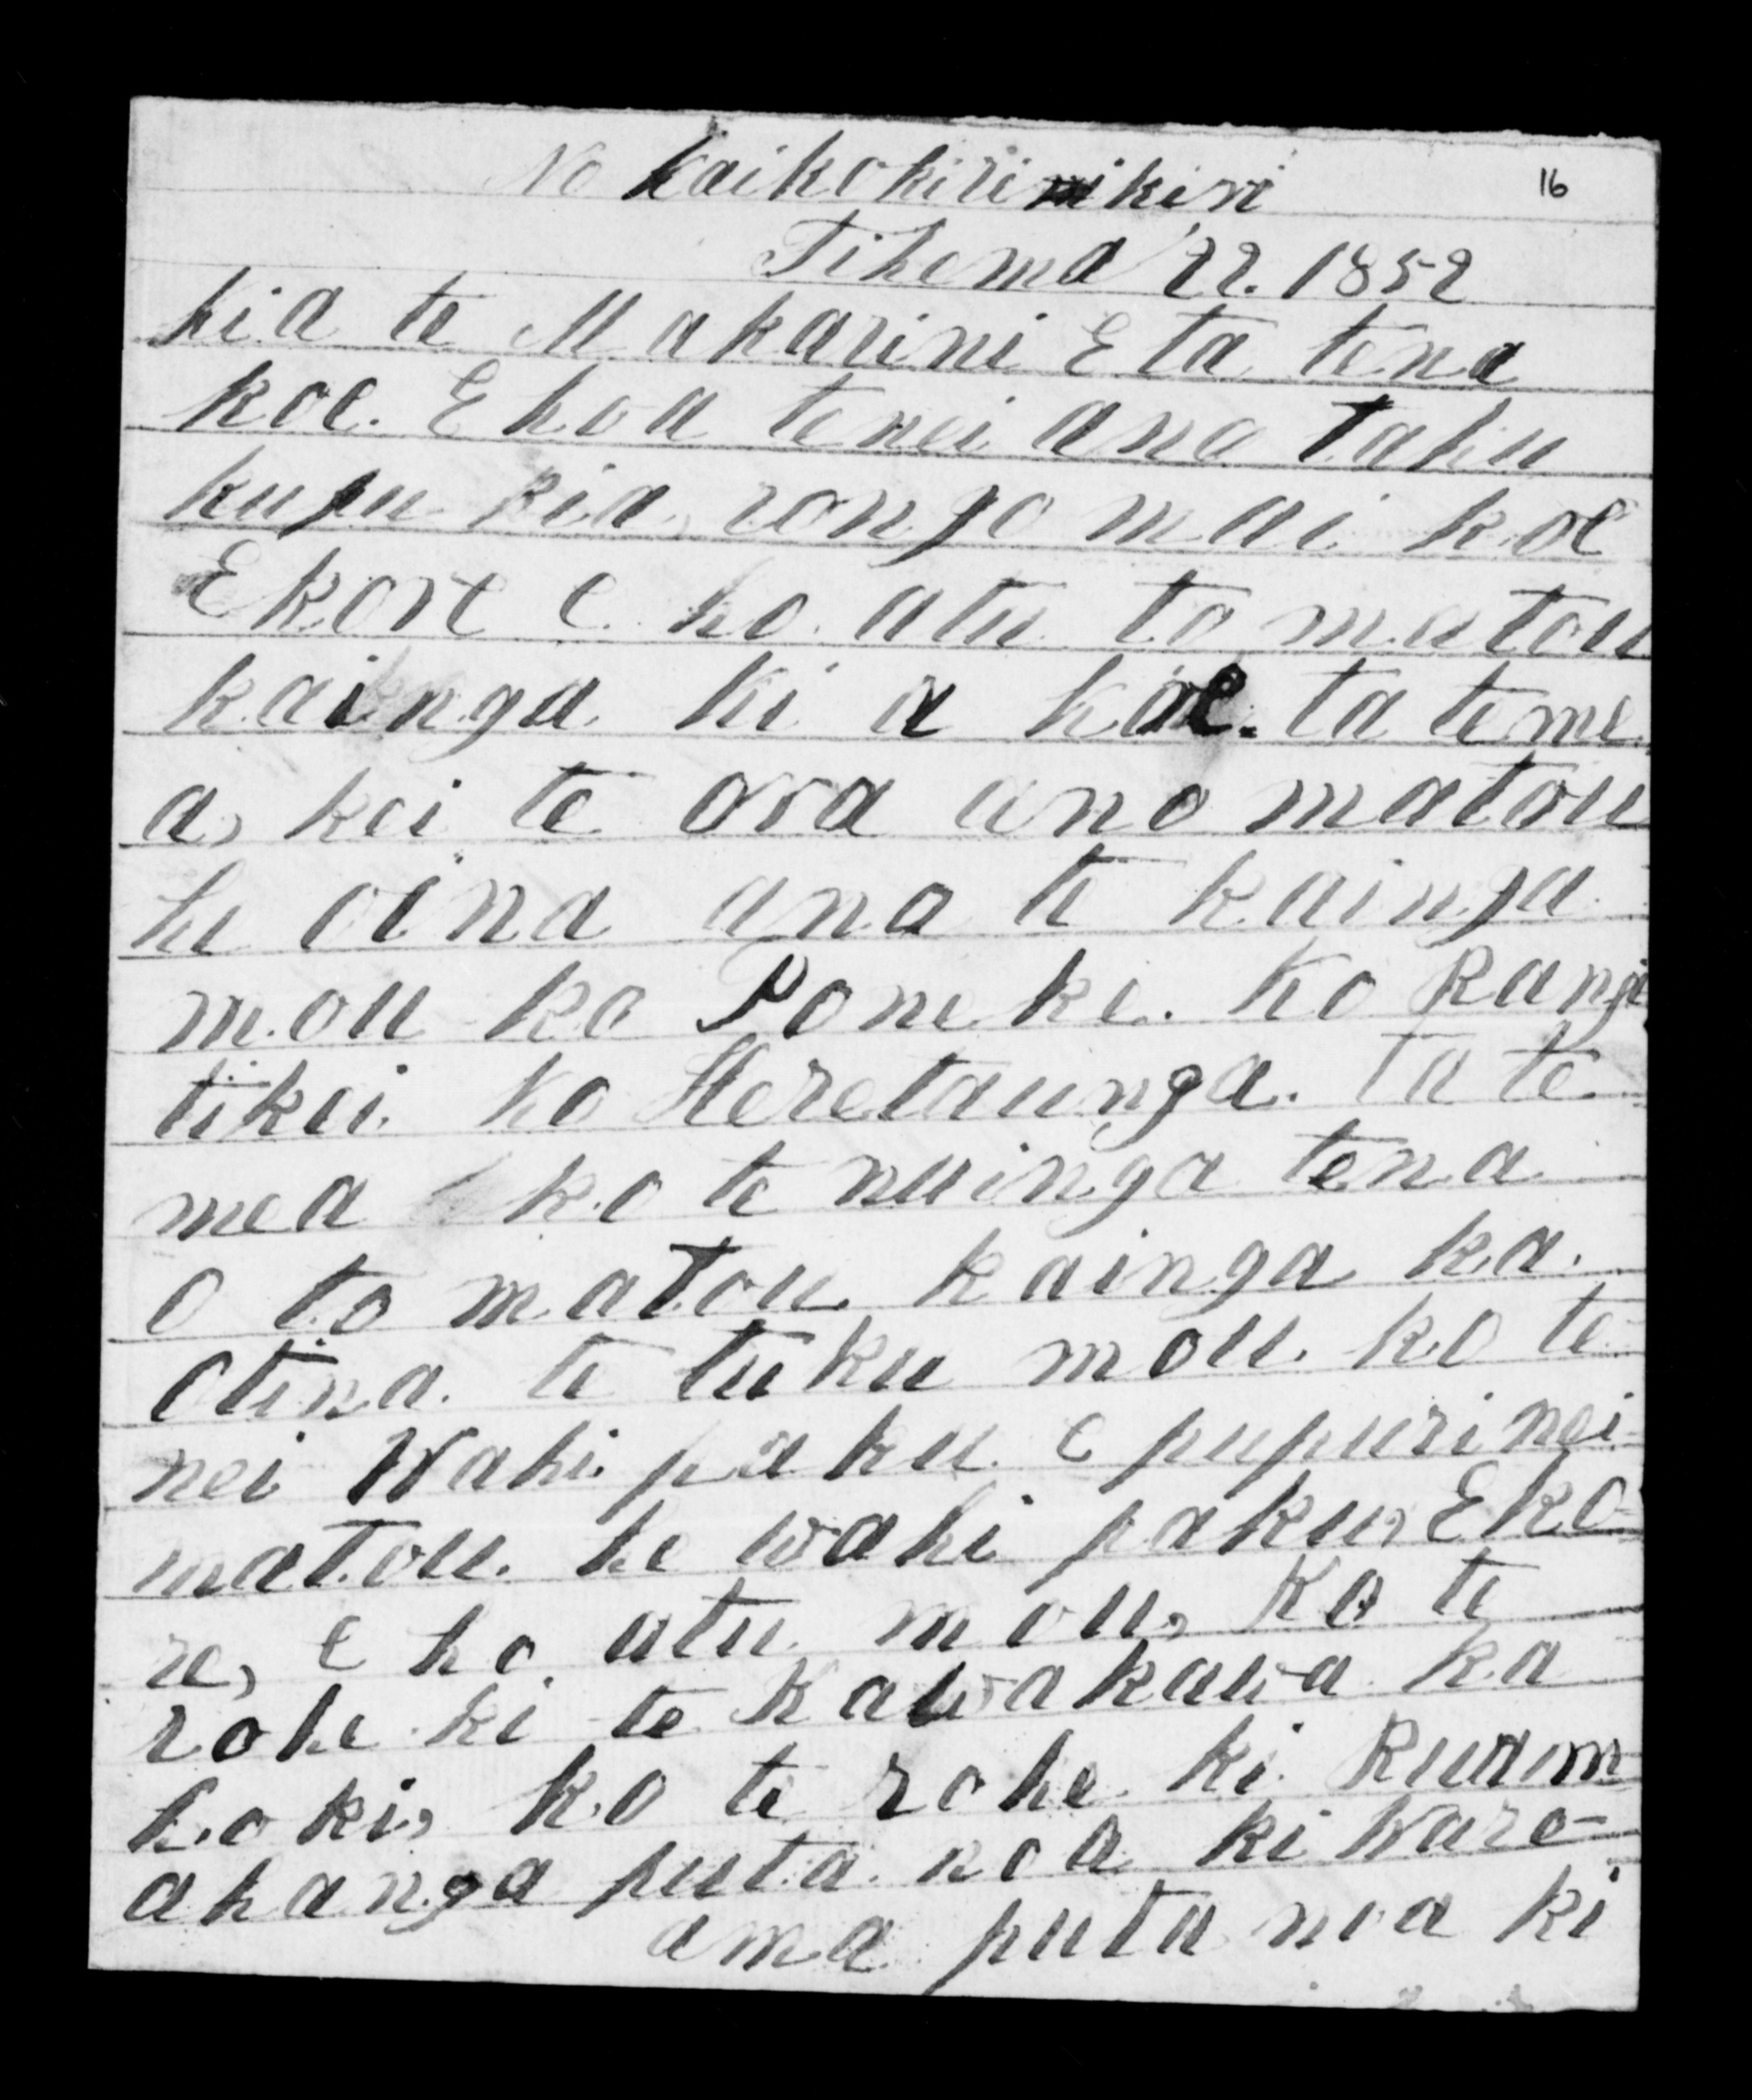 No Kaikokirikiri
16
Tihema 22. 1852
kia te Makarini E ta tena
koe. E hoa tenei ano taku
kupu kia rongo mai koe
Ekore e ho atu to matou
kainga ki a koe. ta te me
a, kei te ora ano matou
he oina ano te kainga
mou ko Poneke. Ko Rangi
tikei. Ko Heretaunga. Ta te
mea ko te nuinga tena
o to matou kainga ka
otina te tuku mou. ko te
nei Wahi paku e pupuri nei
matou. he wahi paku, Eko-
re, e ho atu mou, Ko te
rohe ki te Kawakawa ka
hoki, ko te rohe ki Ruam
ahanga puta noa ki Ware-
ama puta noa ki